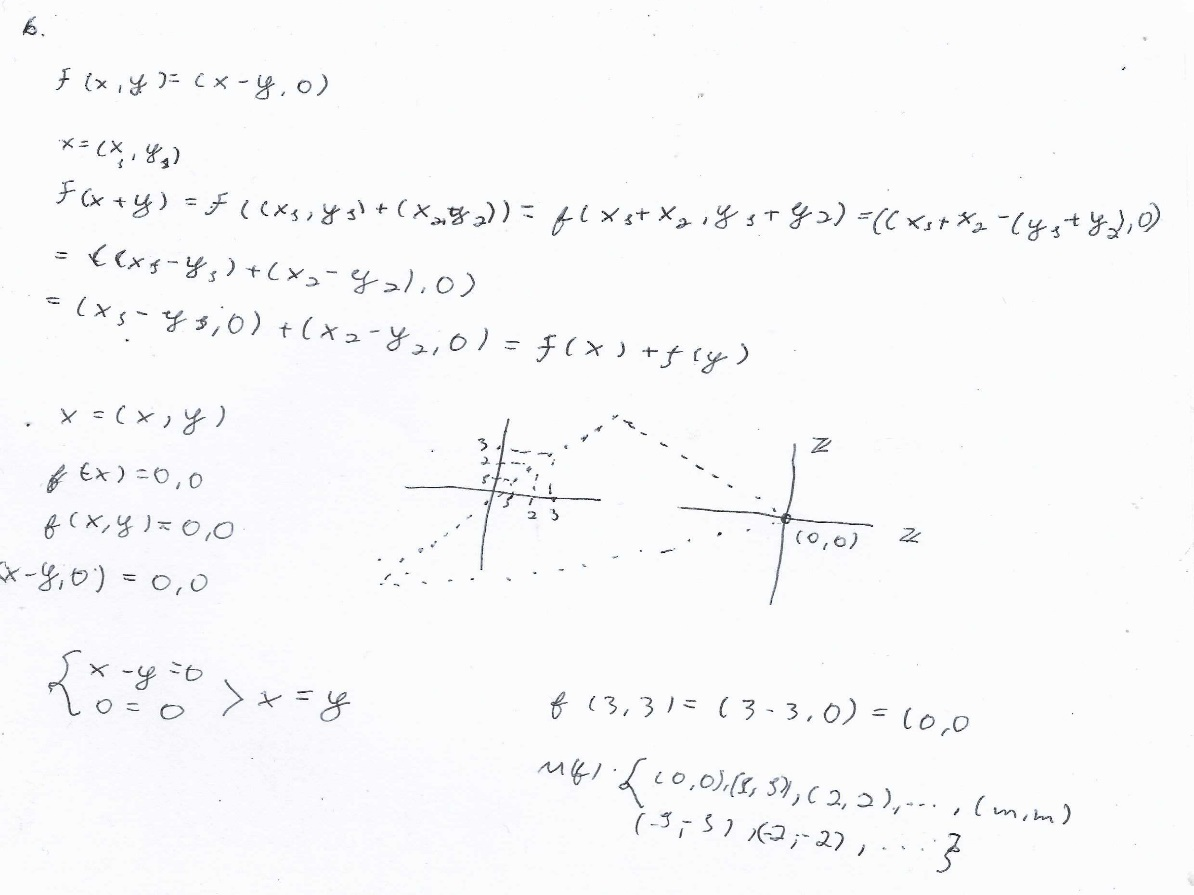 6.
f(x,y)=(x-y,0)
x=(x₁,y₁)
f(x+y)=f((x₁,y₁)+(x₂,y₂))=f(x₁+x₂,y₁+y₂)=((x₁+x₂-(y₁+y₂),0)
=((x₁-y₁)+(x₂-y₂),0)
=(x₁-y₁,0)+(x₂-y₂,0)=f(x)+f(y)
x=(x,y)
f(x)=0,0
f(x,y)=0,0
(x-y,0)=0,0
3
2
1
1 2 3
ℤ
(0,0) ℤ
{x-y=0
0=0 > x=y
f(3,3)=(3-3,0)=(0,0
N(f) {(0,0),(1,1),(2,2),...,(m,m)
(-1,-1),(-2,-2),....}